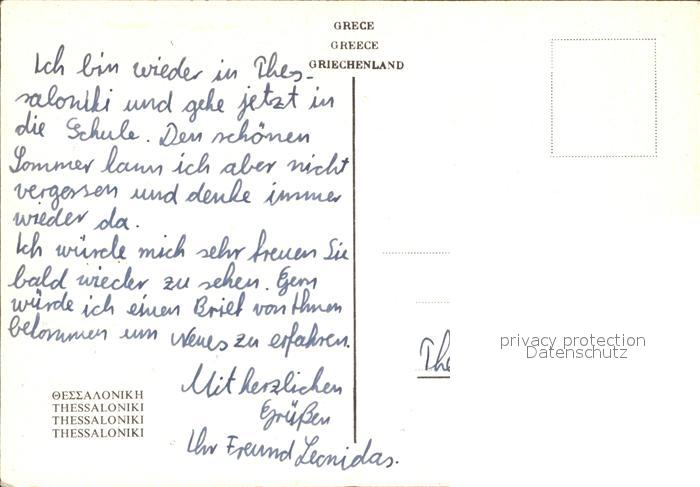 GRECE
GREECE
GRIECHENLAND
Ich bin wieder in Thes-
saloniki und gehe jetzt in
die Schule. Den schönen
Sommer kann ich aber nicht
vergessen und denke immer
wieder da.
Ich würde mich sehr freuen Sie
bald wieder zu sehen. Gern
würde ich einen Brief von Ihnen
bekommen um Neues zu erfahren.
Mit herzlichen
Grüßen
Ihr Freund Leonidas.
ΘΕΣΣΑΛΟΝΙΚΗ
THESSALONIKI
THESSALONIKI
THESSALONIKI
The
privacy protection
Datenschutz